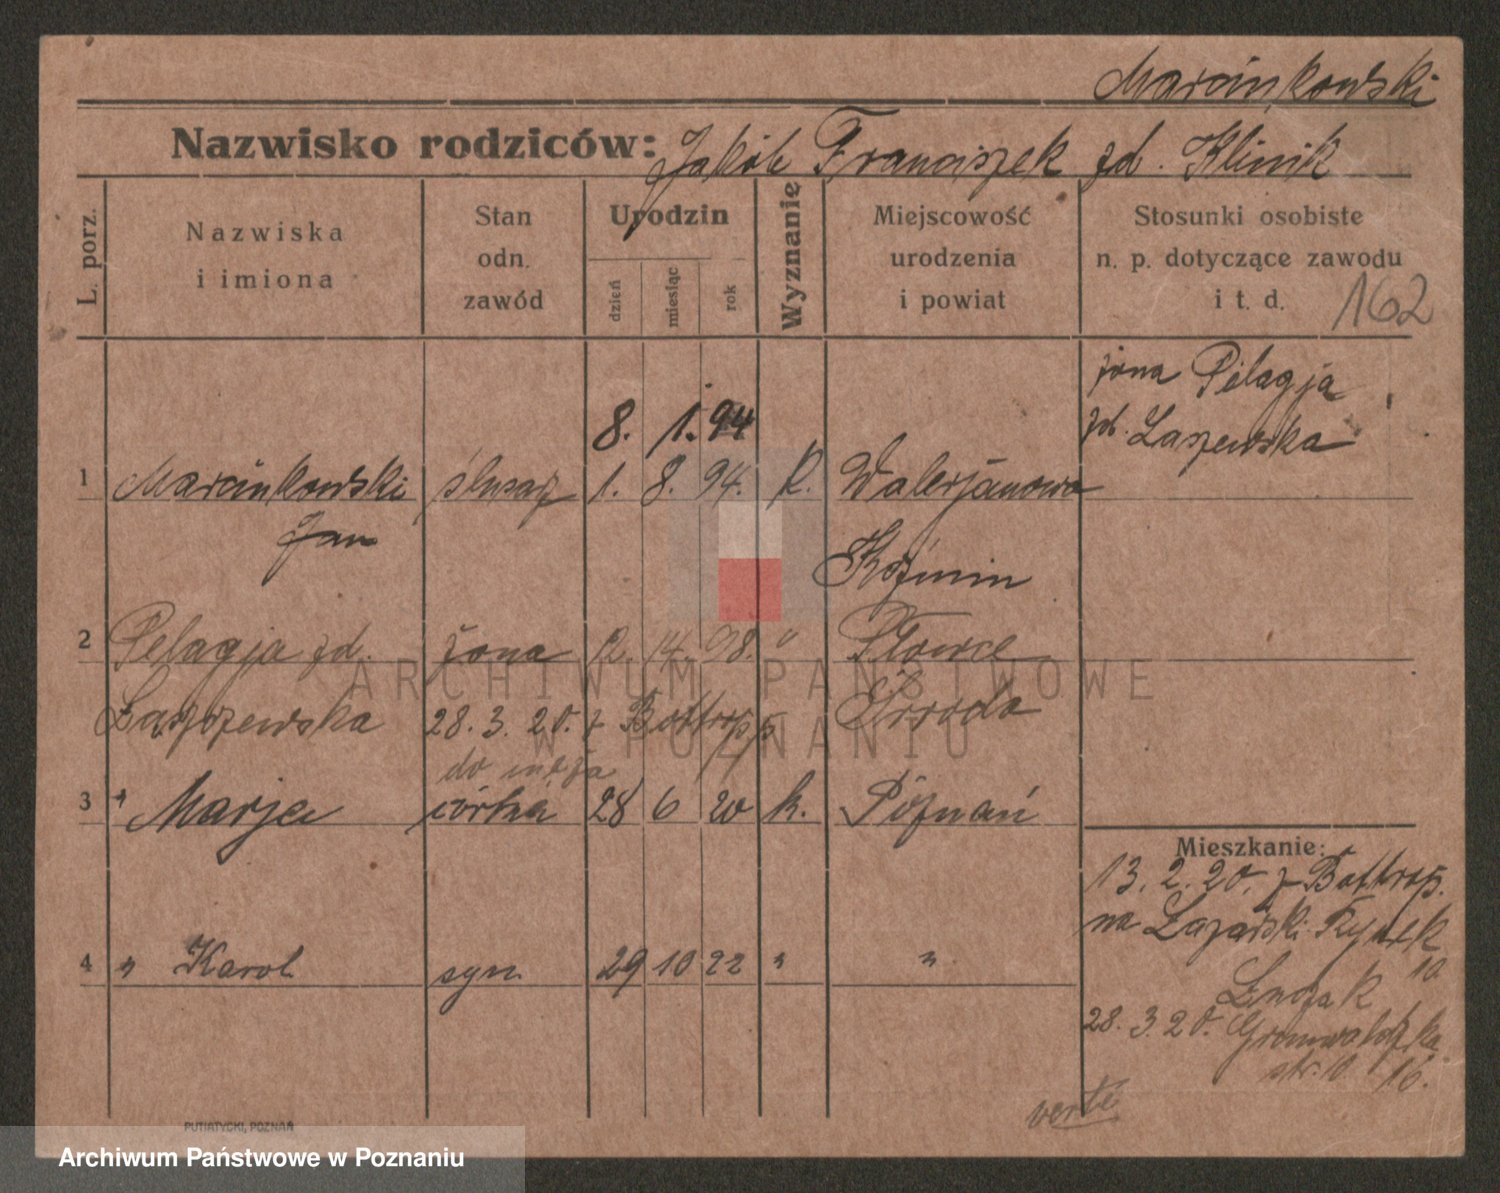 Marcinkowski
Nazwisko rodziców: Jakób Franciszek zd. Klinik
L. porz.
Nazwiska
i imiona
Stan
odn.
zawód
Urodzin
dzień
miesiąc
rok
Wyznanie
Miejscowość
urodzenia
i powiat
Stosunki osobiste
n. p. dotyczące zawodu
i t. d.
162
żona Pelagja
zd. Laszewska
8. 1. 94
1 Marcinkowski ślusarz 1. 8. 94. k. Walerjanowo
Jan
Koźmin
2 Pelagja zd. żona 12. 14. 98. " Pławce
Laszewska 28. 3. 20. z Bottropp Środa
do męża
3 " Marja córka 28 6 20 k. Poznań
Mieszkanie:
13. 2. 20. z Bottrop.
na Łazarski Rynek
10
4 " Karol syn 29 10 22 " "
28. 3. 20. Grunwaldzka
str. 10 16.
verte
PUTIATYCKI, POZNAŃ
ARCHIWUM PAŃSTWOWE
W POZNANIU
Archiwum Państwowe w Poznaniu